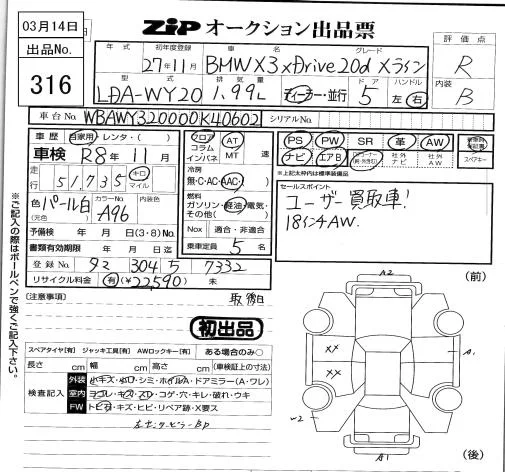 03月14日
ZIP オークション出品票
出品No.
316
年式 初年度登録 車名 グレード
27年11月 BMW X3 xDrive20d Xライン
型式 排気量 ドア ハンドル
LDA-WY20 1,99L ディーラー・並行 5 左 右
評価点
R
内装
B
車台No. WBAWY320000K40602 シリアルNo.
車歴 自家用・レンタ・( )
車検 R8年11月
走行 51,735 キロ マイル
色 パール白 (元色) カラーNo. A96 内装色
予備検 年 月 日(3・8)No.
書類有効期限 年 月 日迄
登録No. 304 7332
リサイクル料金 有(¥22,590) 未
フロア コラム インパネ
AT MT 速
冷房
無・C・AC・AAC
燃料
ガソリン・軽油・電気・その他( )
Nox 適合・非適合
乗車定員 5 名
PS PW SR 革 AW
ナビ エアB 社外ナビ 社外AW
スペアキー
※上記太枠内は標準装備品
セールスポイント
ユーザー買取車!
18インチAW.
(注意事項)
初出品
スペアタイヤ(有) ジャッキ工具(有) AWロックキー(有) ある場合のみ○
長さ cm 幅 cm 高さ cm (車検証上の寸法)
検査記入
外装 小キズ・凹・シミ・ホイルA・ドアミラー(A・ワレ)
室内 ヨゴレ・キズ・スレ・コゲ・穴・キレ・破れ・ウキ
FW トビ石・キズ・ヒビ・リペア跡・X要ス
(前)
A2
XX
XX
A1
A1
(後)
※ご記入の際はボールペンで強くご記入下さい。